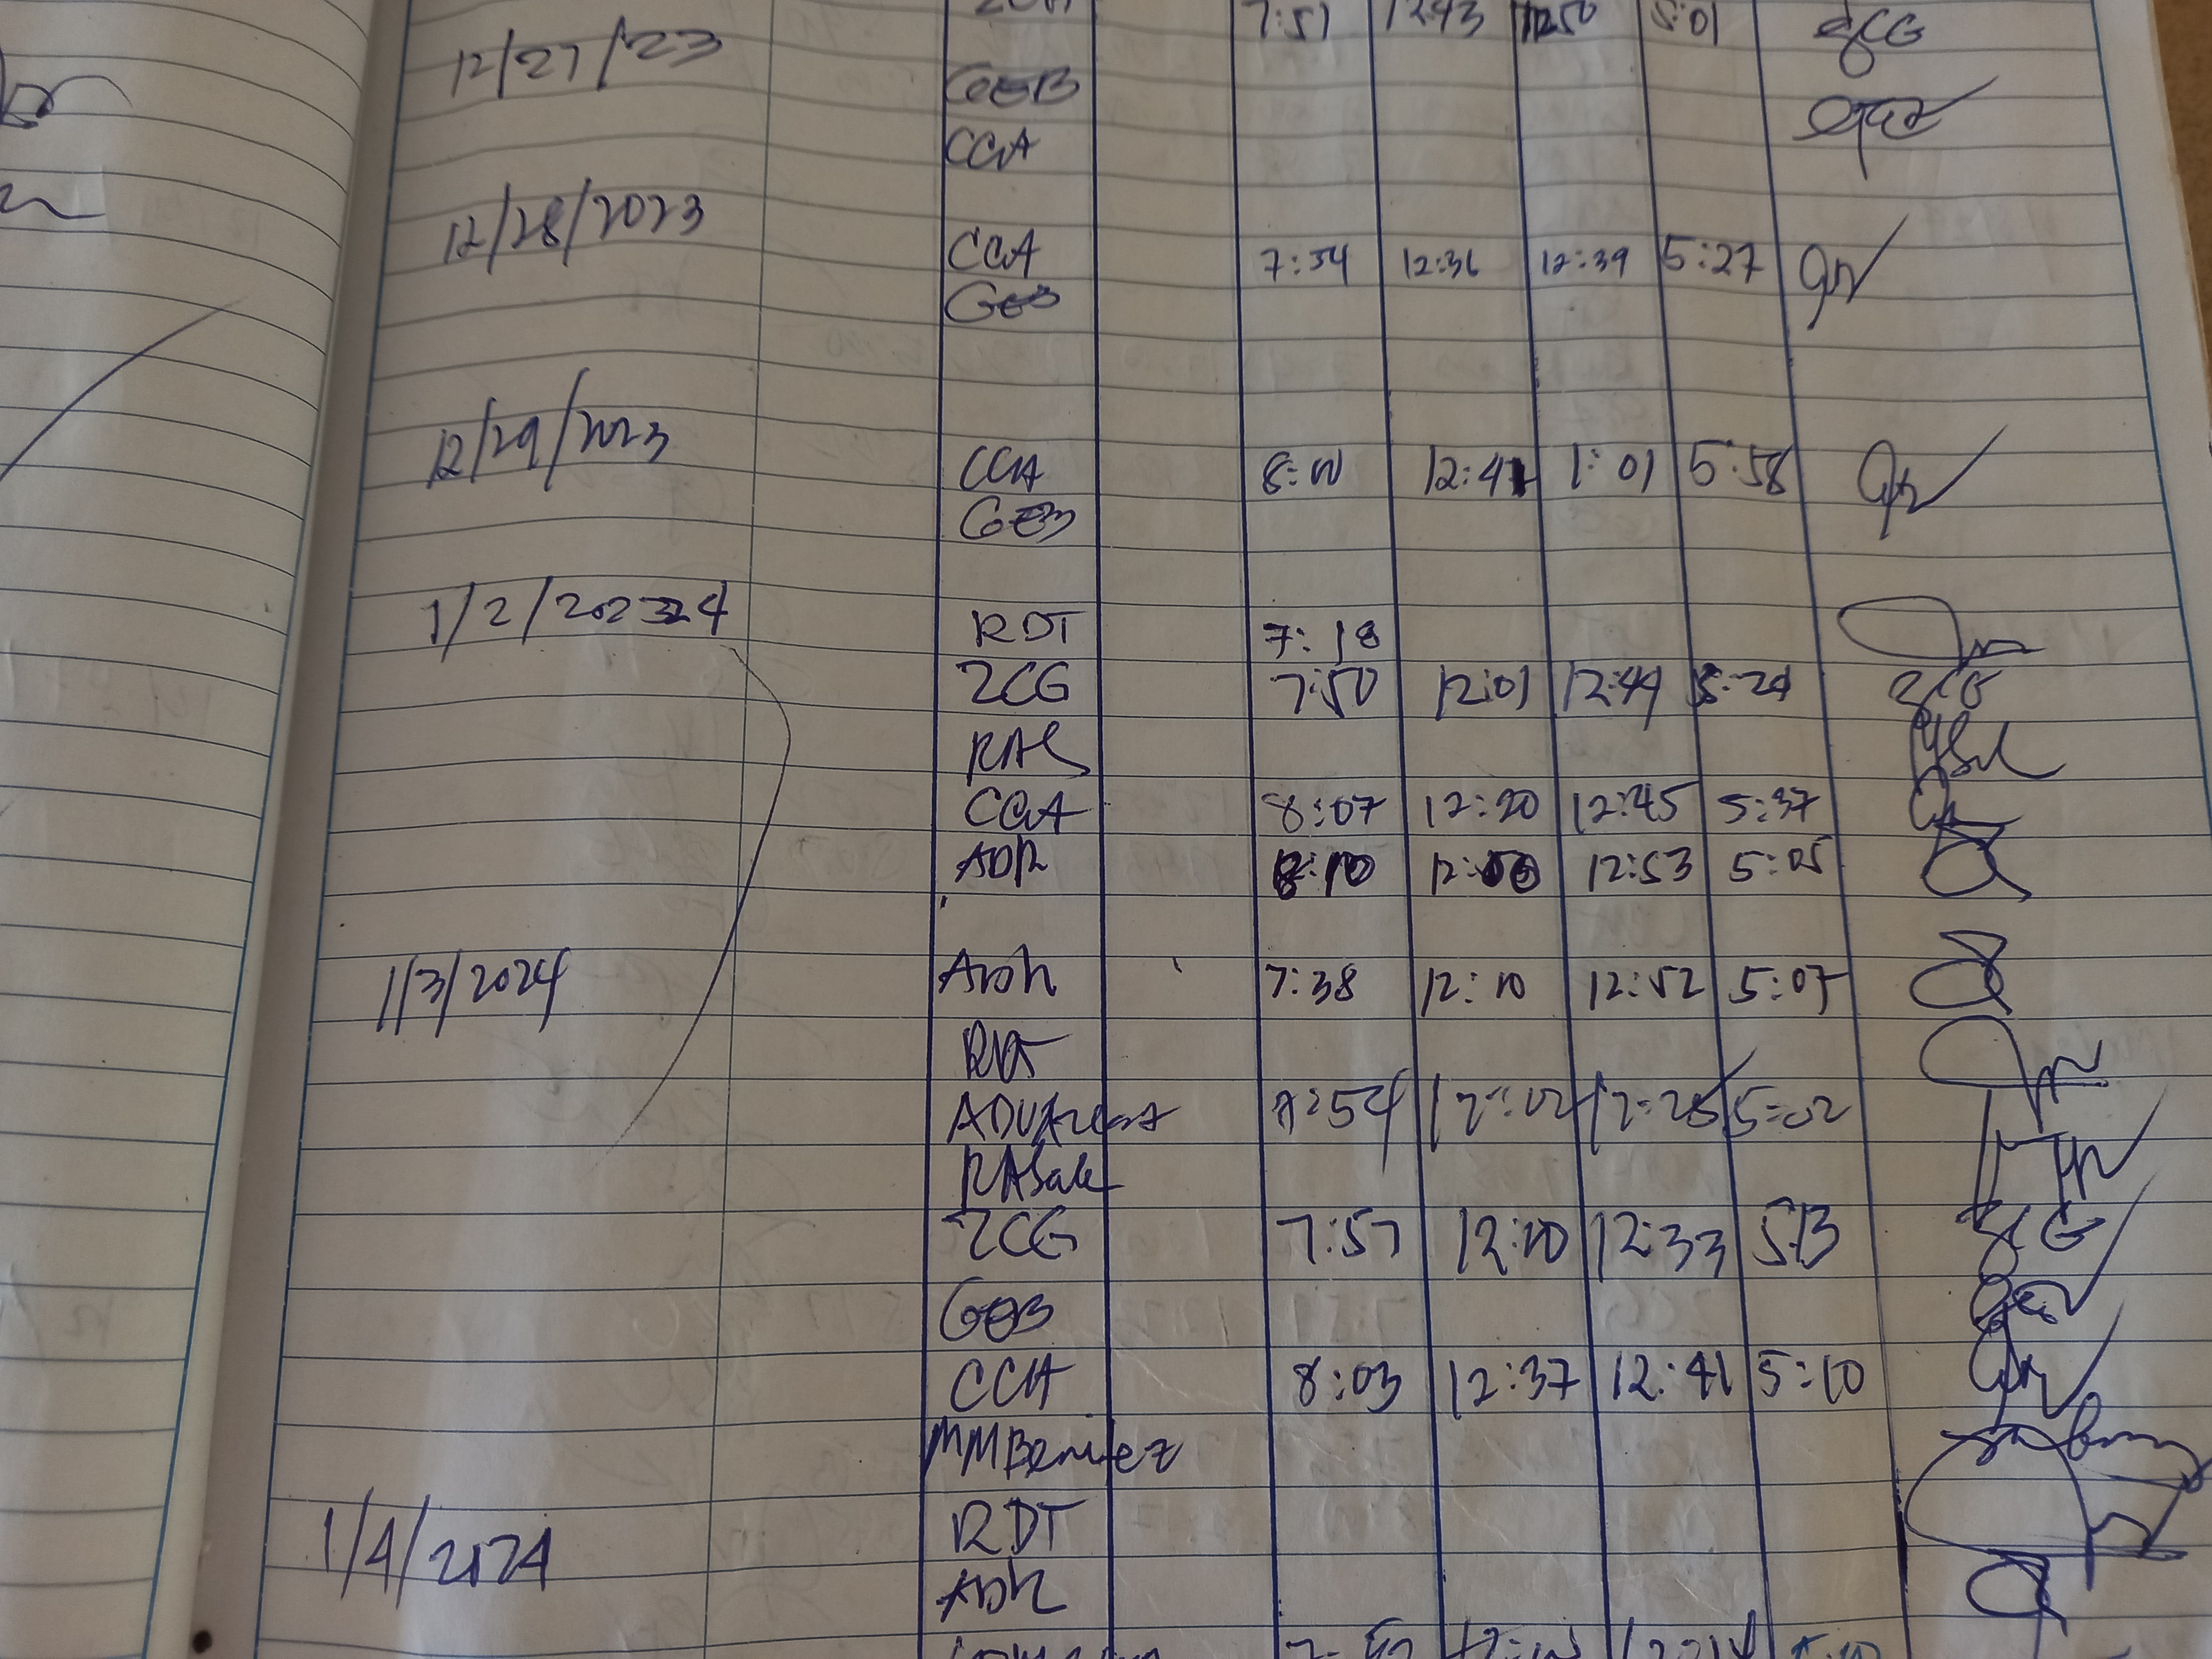 7:51 12:43 12:50 5:01 ZCG
12/27/23
GEB
CCA
12/28/2023
CCA 7:54 12:36 12:39 5:27
GEB
12/29/2023
CCA 8:00 12:41 1:01 5:58
GEB
1/2/2024
RDT 7:18
ZCG 7:50 12:01 12:44 5:24 ZCG
RAS
CCA 8:07 12:20 12:45 5:37
ADR 8:10 12:50 12:53 5:05
1/3/2024 ADR 7:38 12:10 12:52 5:07
RDT
7:54 12:02 12:25 5:02
RASale
ZCG 7:57 12:10 12:33 5:13 ZCG
GEB
CCA 8:03 12:37 12:41 5:10
MMBenitez
RDT
1/4/2024
ADR